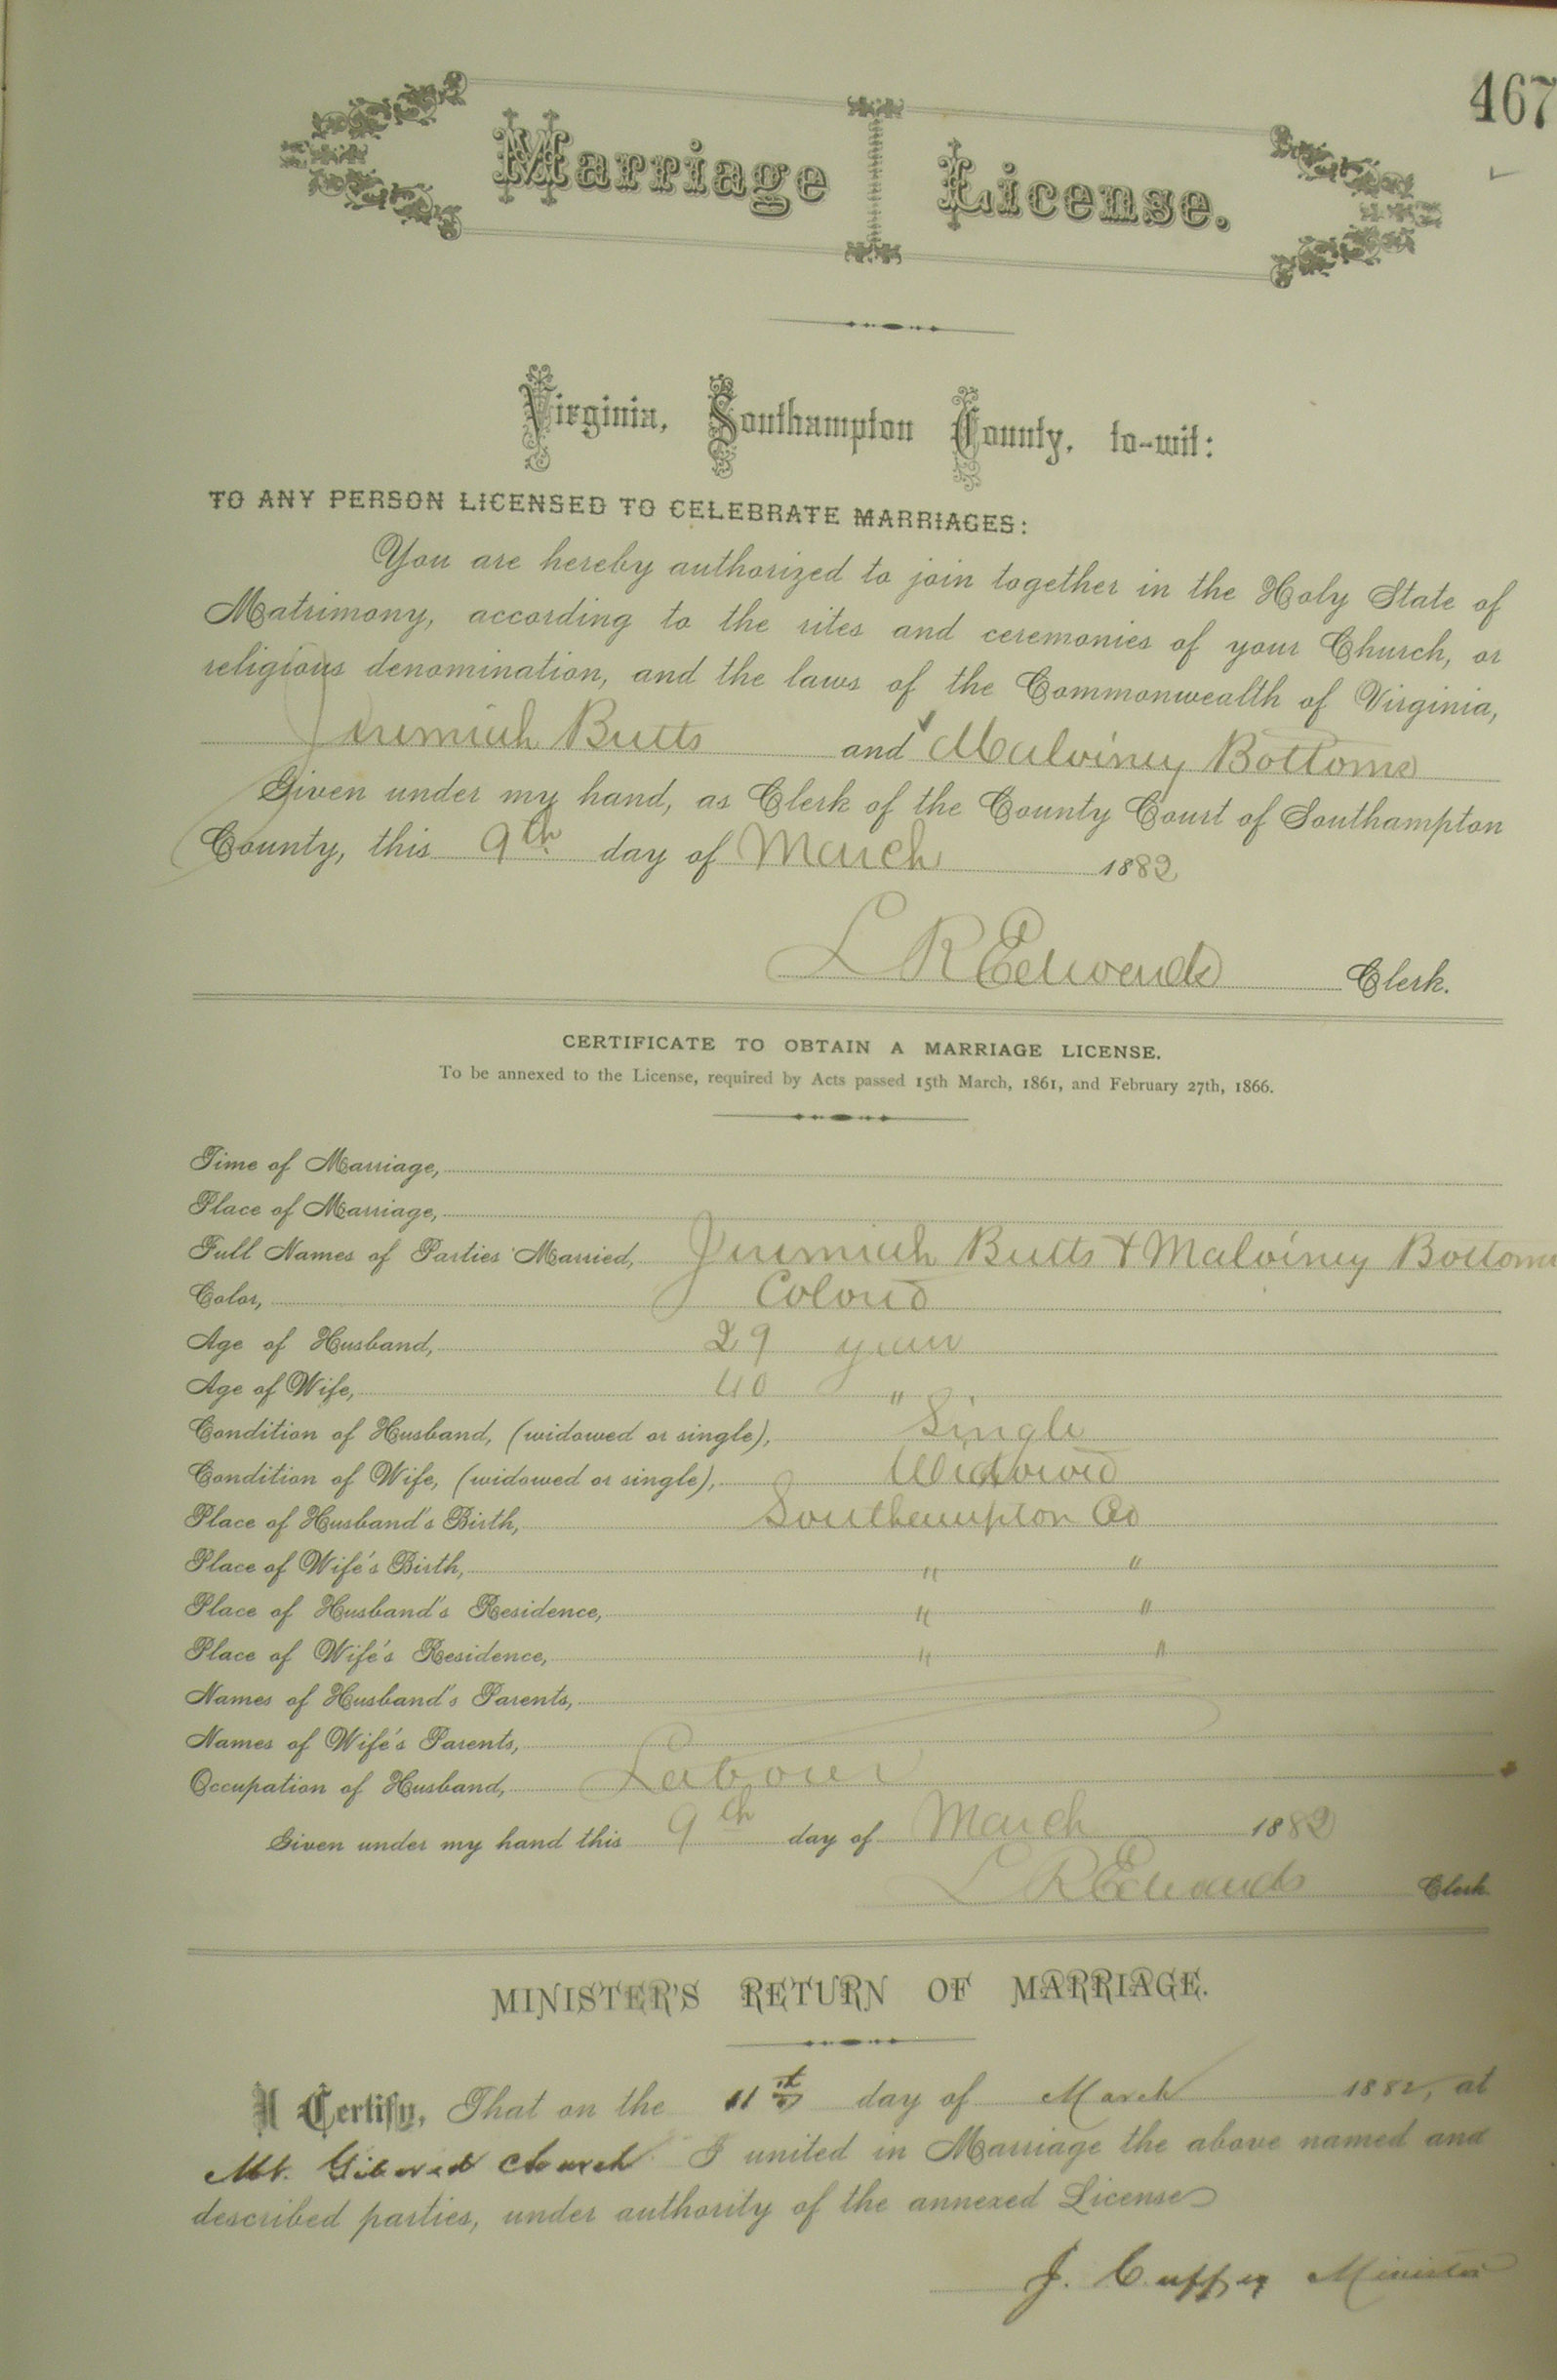 467
Marriage License.
Virginia, Southampton County, to-wit:
TO ANY PERSON LICENSED TO CELEBRATE MARRIAGES:
You are hereby authorized to join together in the Holy State of
Matrimony, according to the rites and ceremonies of your Church, or
religious denomination, and the laws of the Commonwealth of Virginia,
Jeremiah Butts and Malviney Bottoms
Given under my hand, as Clerk of the County Court of Southampton
County, this 9th day of March 1882
L R Edwards Clerk.
CERTIFICATE TO OBTAIN A MARRIAGE LICENSE.
To be annexed to the License, required by Acts passed 15th March, 1861, and February 27th, 1866.
Time of Marriage,
Place of Marriage,
Full Names of Parties Married, Jeremiah Butts & Malviney Bottoms
Color, Colord
Age of Husband, 29 years
Age of Wife, 40 "
Condition of Husband, (widowed or single), Single
Condition of Wife, (widowed or single), Widowed
Place of Husband's Birth, Southampton Co
Place of Wife's Birth, " "
Place of Husband's Residence, " "
Place of Wife's Residence, " "
Names of Husband's Parents,
Names of Wife's Parents,
Occupation of Husband, Labourer
Given under my hand this 9th day of March 1882
L R Edwards Clerk.
MINISTER'S RETURN OF MARRIAGE.
I Certify, That on the 11th day of March 1882, at
Mt. church I united in Marriage the above named and
described parties, under authority of the annexed License
J. Cuffey Minister